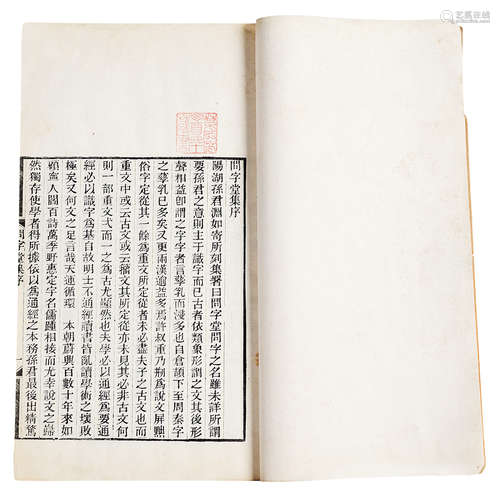 問字堂集序
陽湖孫君淵如寄所刻集署曰問字堂問字之名雖未詳所謂
要孫君之意則主于識字而已古者依類象形謂之文其後形
聲相益即謂之字字者言孳乳而浸多也自倉頡下至周秦字
之孳乳已多矣而兩漢遞益多焉許叔重乃刱爲說文屏黜
俗字定從其一餘爲重文所定從者未必盡夫子之古文也而
重文中或云古文或云籒文其所定從亦未見其必非古文何
則一部重文弍而一之爲古尤顯然也夫學必以通經爲要通
經必以識字爲基自故明士不通經讀書皆亂讀學術之壞敗
極矣又何文之足言哉天運循環 本朝蔚興百數十年來如
顧寧人閻百詩萬季野惠定宇名儒踵相接而尤幸說文之巋
然獨存使學者得所據依以爲通經之本務孫君最後出精騖
問字堂集序
一